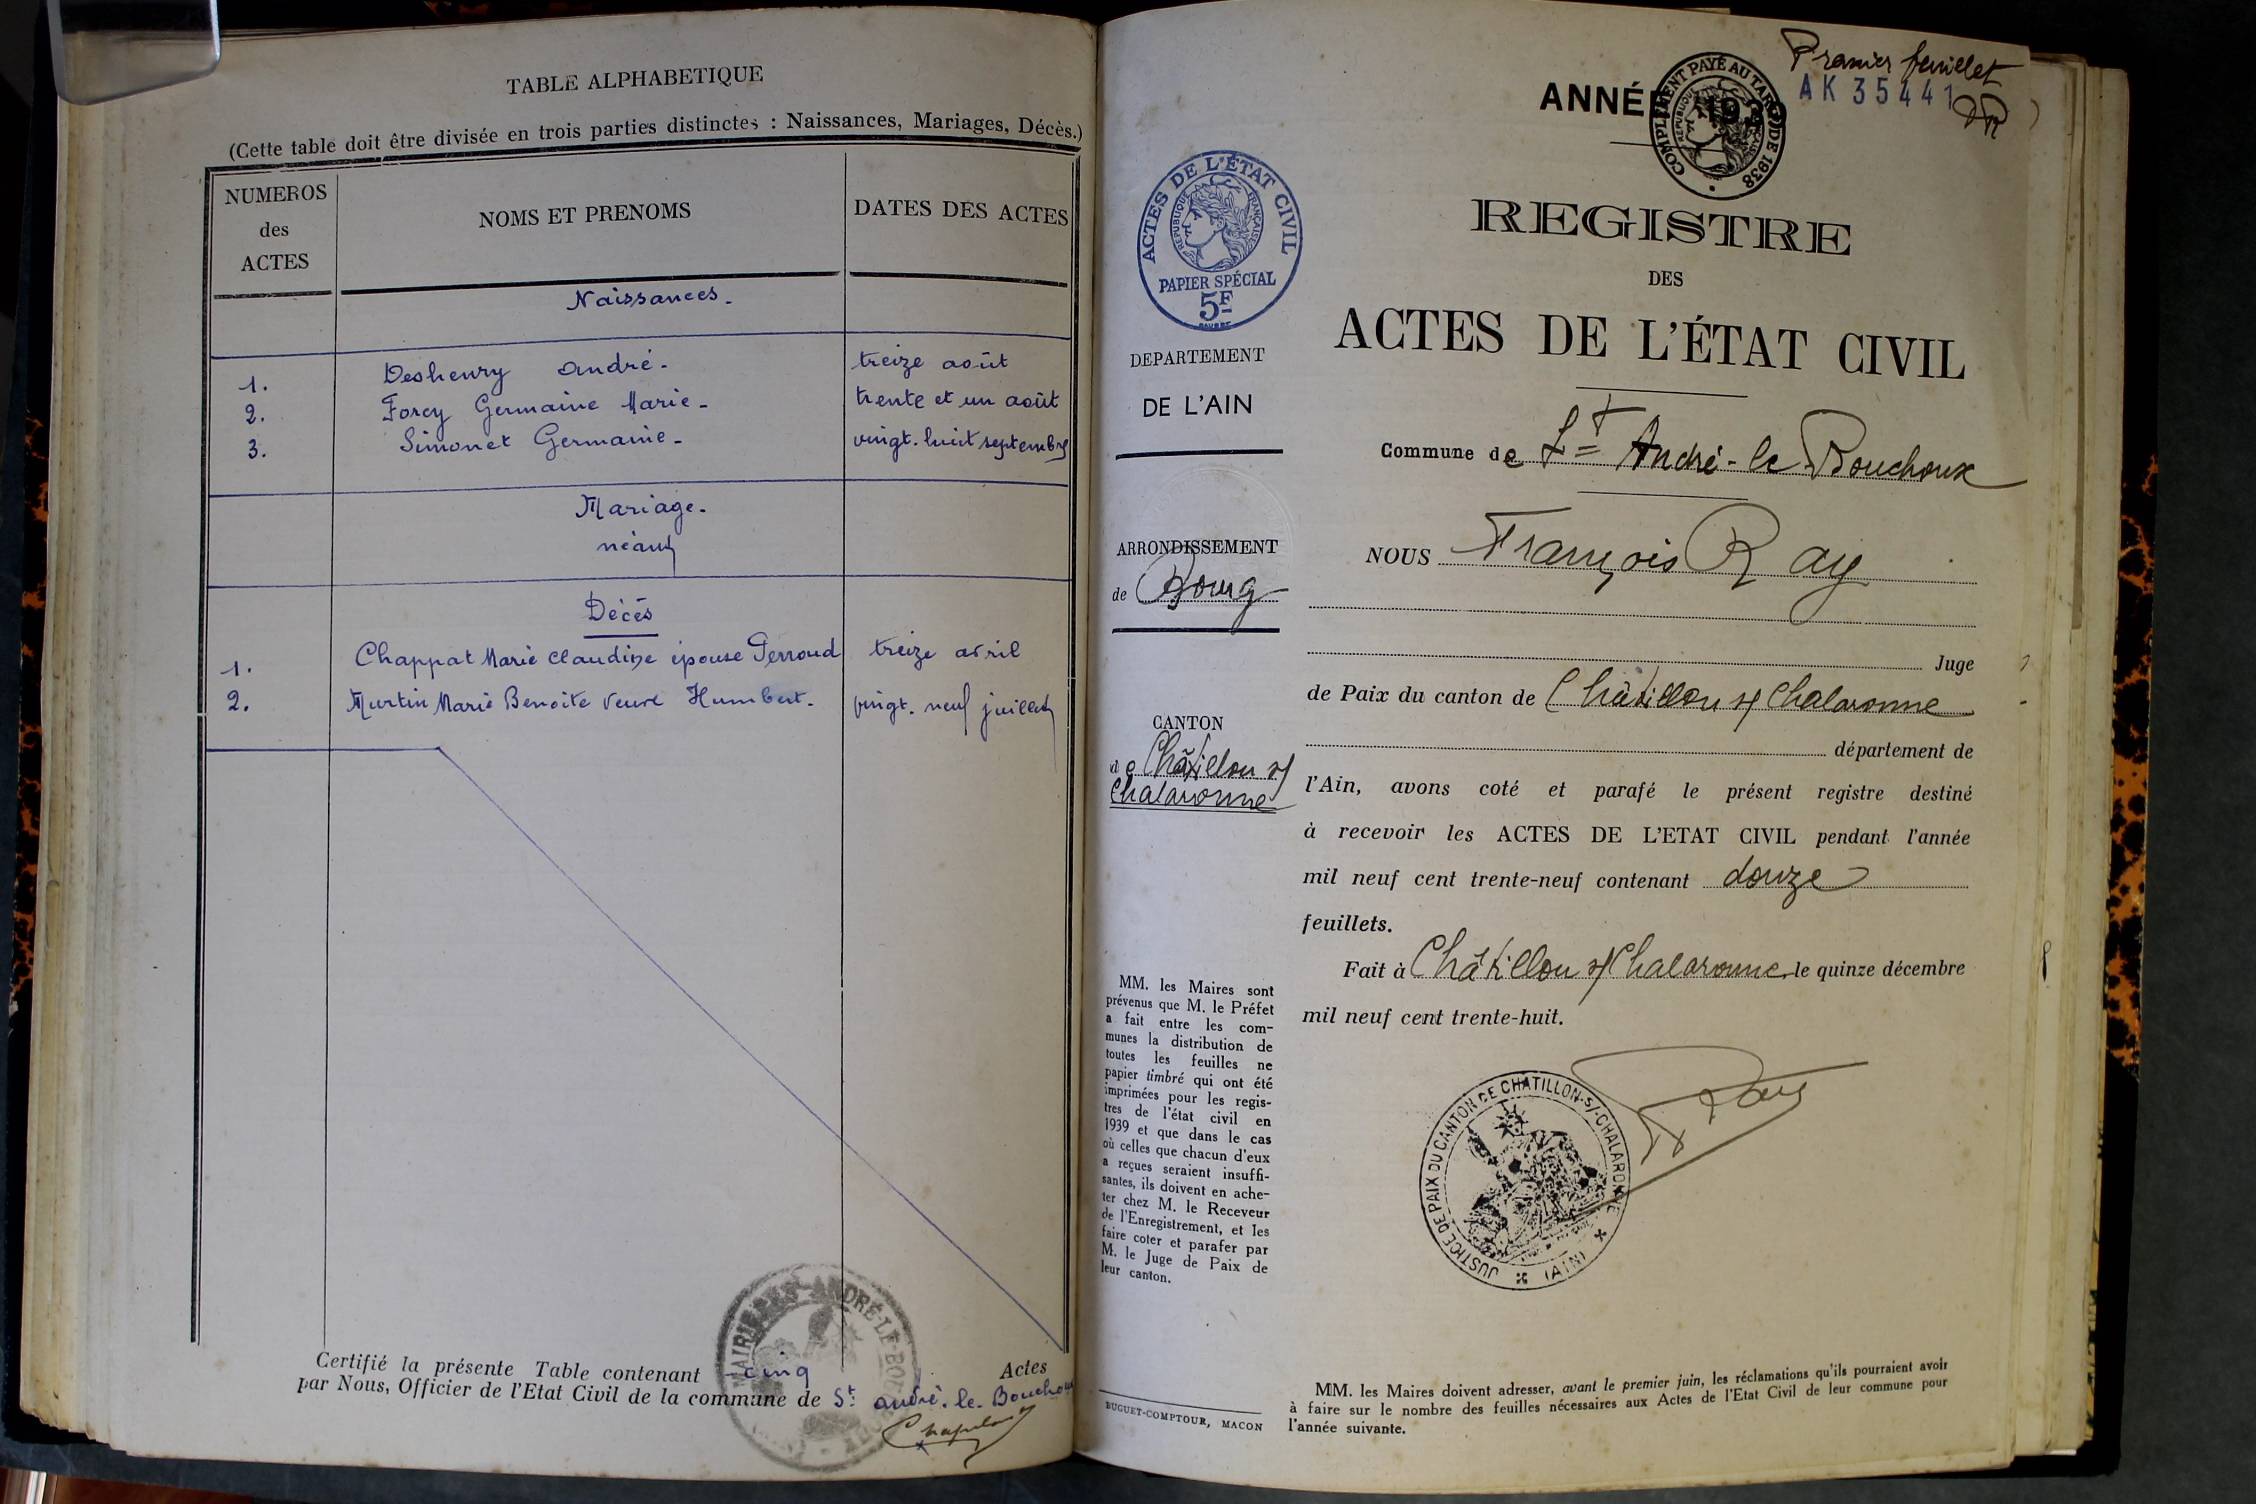 TABLE ALPHABETIQUE
(Cette table doit être divisée en trois parties distinctes : Naissances, Mariages, Décès.)
NUMEROS des ACTES
NOMS ET PRENOMS
DATES DES ACTES
Naissances.
1. Deshenry André. treize août
2. Forey Germaine Marie. trente et un août
3. Simonet Germanie. vingt. huit septembre
Mariage.
néant
Décès
1. Chappat Marie Claudine épouse Perroud treize avril
2. Murtin Marie Benoite veuve Humbert. vingt. neuf juillet
Certifié la présente Table contenant cinq Actes
par Nous, Officier de l'Etat Civil de la commune de St. André. le. Bouchoux
Premier feuillet
AK 35441
ANNÉE 1939
COMPLÉMENT PAYÉ AU TARIF DE 1938
ACTES DE L'ÉTAT CIVIL
RÉPUBLIQUE FRANÇAISE
PAPIER SPÉCIAL
5F
DEPARTEMENT
DE L'AIN
ARRONDISSEMENT
de Bourg
CANTON
de Châtillon s/
Chalaronne
MM. les Maires sont
prévenus que M. le Préfet
a fait entre les com-
munes la distribution de
toutes les feuilles ne
papier timbré qui ont été
imprimées pour les regis-
tres de l'état civil en
1939 et que dans le cas
où celles que chacun d'eux
a reçues seraient insuffi-
santes, ils doivent en ache-
ter chez M. le Receveur
de l'Enregistrement, et les
faire coter et parafer par
M. le Juge de Paix de
leur canton.
BUGUET-COMPTOUR, MACON
REGISTRE
DES
ACTES DE L'ÉTAT CIVIL
Commune de St André-le-Bouchoux
NOUS François Ray
Juge
de Paix du canton de Châtillon s/ Chalaronne
département de
l'Ain, avons coté et parafé le présent registre destiné
à recevoir les ACTES DE L'ETAT CIVIL pendant l'année
mil neuf cent trente-neuf contenant douze
feuillets.
Fait à Châtillon s/ Chalaronne, le quinze décembre
mil neuf cent trente-huit.
JUSTICE DE PAIX DU CANTON DE CHATILLON-S/-CHALARONNE
(AIN)
MM. les Maires doivent adresser, avant le premier juin, les réclamations qu'ils pourraient avoir
à faire sur le nombre des feuilles nécessaires aux Actes de l'Etat Civil de leur commune pour
l'année suivante.